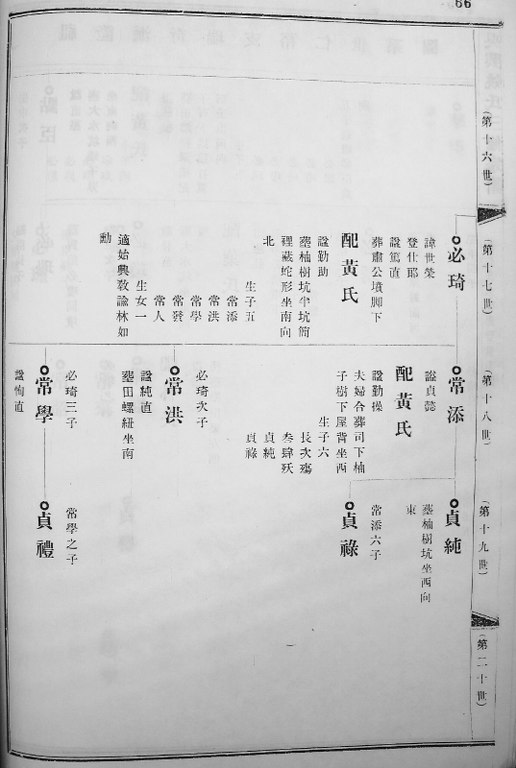 66
(第十六世)
(第十七世)
(第十八世)
(第十九世)
(第二十世)
必琦
諱世榮
登仕郎
諡篤直
葬肅公墳脚下
配黃氏
諡勤助
墓柚樹坑半坑簡
裡藏蛇形坐南向
北
生子五
常添
常洪
常學
常發
常人
生女一
適始興敎諭林如
勳
常添
諡貞懿
配黃氏
諡勤操
夫婦合葬司下柚
子樹下屋背坐西
生子六
長次殤
叁肆殀
貞純
貞祿
常洪
必琦次子
諡純直
墓田螺紐坐南
常學
必琦三子
諡恂直
貞純
墓柚樹坑坐西向
東
貞祿
常添六子
貞禮
常學之子